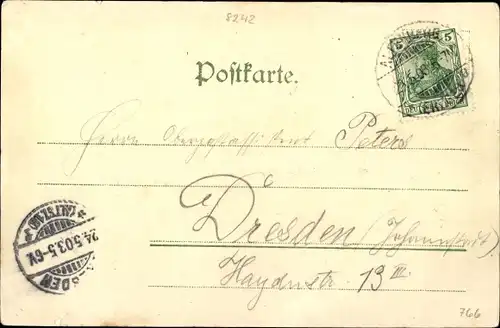 8242
5 5
Postkarte.
Herrn Oberpostassistent Peters
Dresden (Johannstadt)
Haydnstr. 13 III
DRESDEN
24.5.03.5-6V.
* (ALTSTADT)
766